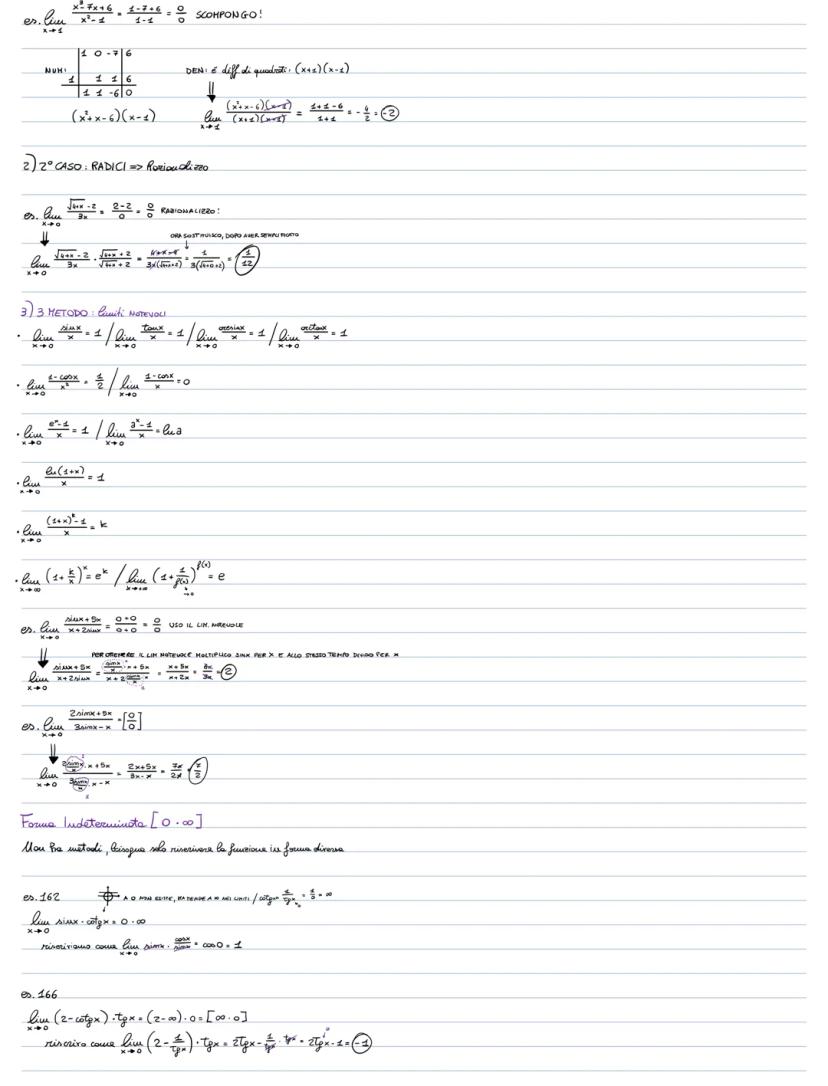 es. lim x→0 (x³-7x+6)/(x²-1) = (1-7+6)/(1-1) = 0/0 SCOMPONGO!
1 0 -7 6
NUM: 1 1 1 6 DEN: è diff di quadrati: (x+1)(x-1)
1 1 -6 0
(x²+x-6)(x-1) lim x→1 (x²+x-6)(x-1)/(x+1)(x-1) = (1+1-6)/(1+1) = -4/2 = -2
2) 2° CASO: RADICI => Razionalizzo
es. lim x→0 (√4+x - 2)/3x = (2-2)/0 = 0/0 RAZIONALIZZO!
ORA SOSTITUISCO, DOPO AVER SEMPLIFICATO
lim x→0 (√4+x - 2)/3x · (√4+x + 2)/(√4+x + 2) = (4+x-4)/3x(√4+x+2) = 1/3(√4+0+2) = 1/12
3) 3 METODO: limiti NOTEVOLI
· lim x→0 sinx/x = 1 / lim x→0 tanx/x = 1 / lim x→0 arcsinx/x = 1 / lim x→0 arctanx/x = 1
· lim x→0 (1-cosx)/x² = 1/2 / lim x→0 (1-cosx)/x = 0
· lim x→0 (eˣ-1)/x = 1 / lim x→0 (aˣ-1)/x = ln a
· lim x→0 ln(1+x)/x = 1
· lim x→0 ((1+x)ᵏ-1)/x = k
· lim x→∞ (1+k/x)ˣ = eᵏ / lim x→+∞ (1+1/f(x))^f(x) = e
es. lim x→0 (sinx+5x)/(x+2sinx) = (0+0)/(0+0) = 0/0 USO IL LIM. NOTEVOLE
PER OTTENERE IL LIM NOTEVOLE MOLTIPLICO SINX PER X E ALLO STESSO TEMPO DIVIDO PER X
lim x→0 (sinx+5x)/(x+2sinx) = (sinx/x · x+5x)/(x+2 sinx/x · x) = (x+5x)/(x+2x) = 6x/3x = 2
es. lim x→0 (2sinx+5x)/(3sinx-x) = [0/0]
lim x→0 (2sinx/x · x+5x)/(3sinx/x · x-x) = (2x+5x)/(3x-x) = 7x/2x = 7/2
Forma Indeterminata [0·∞]
Non ha metodi, bisogna solo riscrivere la funzione in forma diversa
es. 162 A 0 NON ESISTE, MA TENDE A ∞ NEI LIMITI / cotgx = 1/tgx = 1/0 = ∞
lim x→0 sinx · cotgx = 0·∞
riscriviamo come lim x→0 sinx · cosx/sinx = cos0 = 1
es. 166
lim x→0 (2-cotgx)·tgx = (2-∞)·0 = [∞·0]
riscrivo come lim x→0 (2-1/tgx)·tgx = 2Tgx - 1/tgx · tgx = 2Tgx-1 = -1